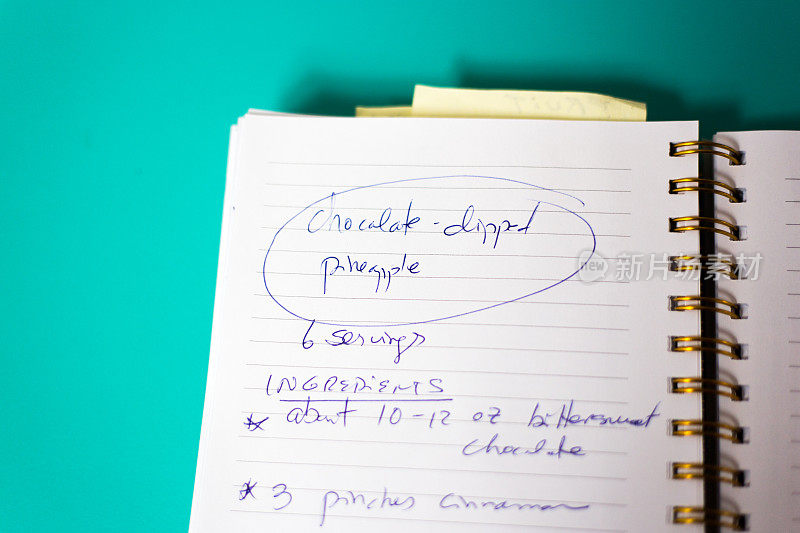 chocolate-dipped
pineapple
6 servings
INGREDIENTS
* about 10-12 oz bittersweet
chocolate
* 3 pinches cinnamon
new 新片场素材